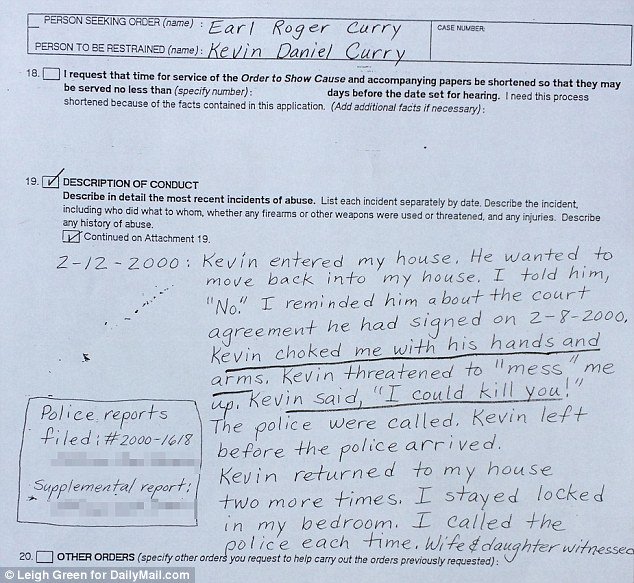 PERSON SEEKING ORDER (name) : Earl Roger Curry
CASE NUMBER:
PERSON TO BE RESTRAINED (name) : Kevin Daniel Curry
18. I request that time for service of the Order to Show Cause and accompanying papers be shortened so that they may
be served no less than (specify number) : days before the date set for hearing. I need this process
shortened because of the facts contained in this application. (Add additional facts if necessary) :
19. ✓ DESCRIPTION OF CONDUCT
Describe in detail the most recent incidents of abuse. List each incident separately by date. Describe the incident,
including who did what to whom, whether any firearms or other weapons were used or threatened, and any injuries. Describe
any history of abuse.
✓ Continued on Attachment 19.
2-12-2000: Kevin entered my house. He wanted to
move back into my house. I told him,
"No." I reminded him about the court
agreement he had signed on 2-8-2000.
Kevin choked me with his hands and
arms. Kevin threatened to "mess" me
up. Kevin said, "I could kill you!"
The police were called. Kevin left
before the police arrived.
Kevin returned to my house
two more times. I stayed locked
in my bedroom. I called the
police each time. Wife & daughter witnessed
Police reports
filed: #2000-1618
Supplemental report:
20. OTHER ORDERS (specify other orders you request to help carry out the orders previously requested) :
© Leigh Green for DailyMail.com